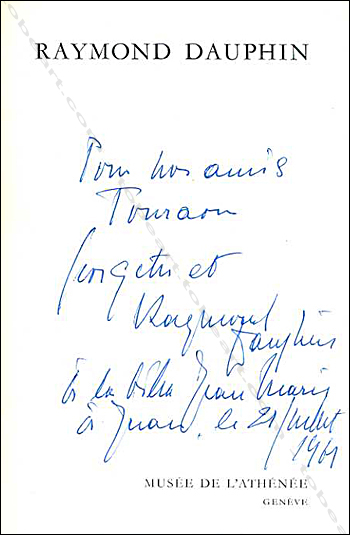 RAYMOND DAUPHIN
Pour nos amis
Georgette et
Raymond
Dauphin
à la villa Jean Marie
à Juan, le 21 Juillet
1961
MUSÉE DE L'ATHÉNÉE
GENÈVE